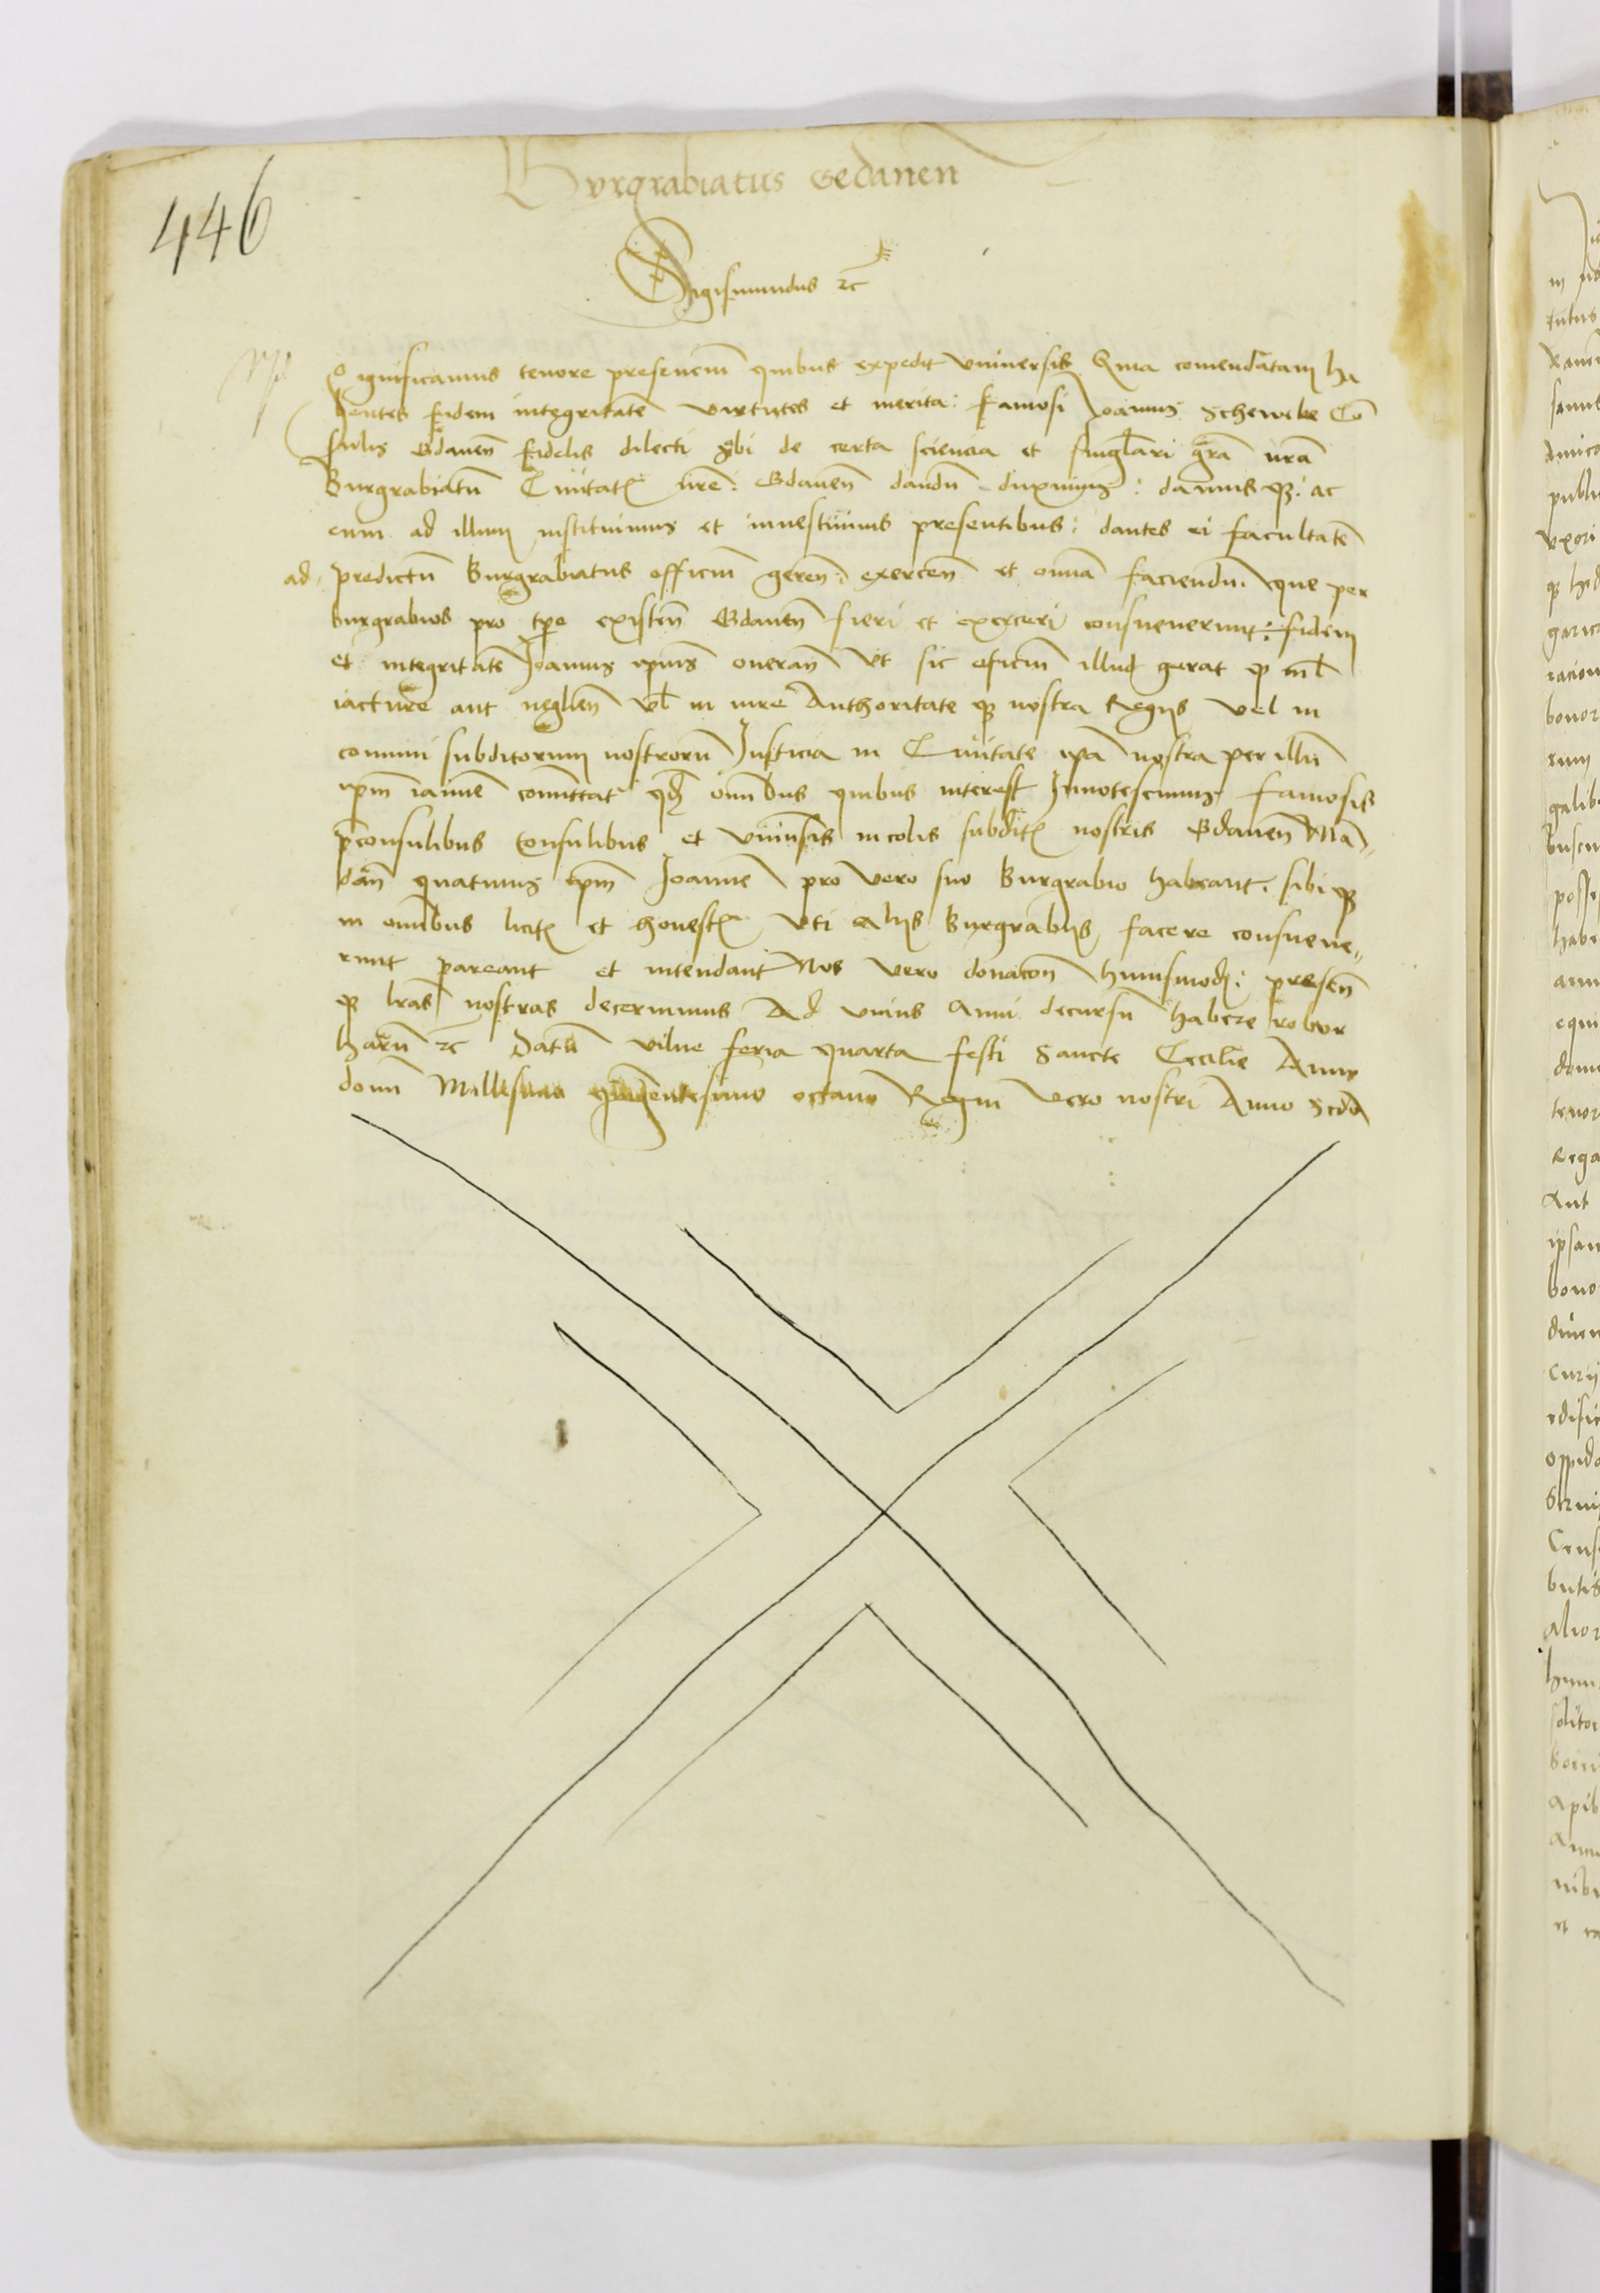 446
Burgrabiatus Gedanen
Sigismundus etc
Significamus tenore presencium quibus expedit vniuersis Quia comendatam ha
bentes fidem integritatē virtutes et merita: famosi Joannis Scheweke Cō
sulis Gdanen̄ fidelis dilecti sibi de certa sciencia et singlari grā nrā
Burgrabiatū Ciuitatis nrē: Gdanen̄ dandū duximus: damus que: ac
eum ad illum instituimus et inuestiuimus presentibus: dantes ei facultatē
ad predictū Burgrabiatus officiū geren̄: exercen̄ et omnia faciendū que per
burgrabios pro tpe existen̄ Gdanen̄ fieri et exerceri consueuerunt: fidem
et integritatē Joannis ipius oneran̄ Vt sic oficiū illud gerat que nil
iacture aut neglien̄ vl in iure Authoritate que nostra Regijs vel in
comuni subditorum nostrorū Justicia in Ciuitate ipa nostra per illū
ipm̄ Joannē comittat qd omnibus quibus interest Innotescimus famosis
pconsulibus Consulibus et vniursis incolis subditis nostris Gdanen̄ Mā
dan̄ quatinus ipm̄ Joannē pro vero suo Burgrabio habeant sibi que
in omibus licitis et honestis vti alijs Burgrabijs facere consueue
runt pareant et intendant Nos vero donacon̄ huiusmodi: presen̄
que lras nostras decernimus Ad vnius Anni decursū habere robor
harū etc Datū vilne feria quarta festi Sancte Cecilie Anno
domi Millesimo quingentesimo octauo Regni vero nostri Anno scdo